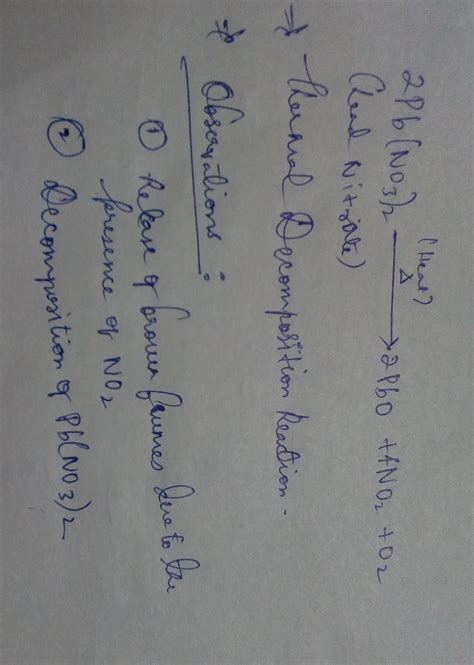 2Pb(NO3)2 (Heat) Δ → 2PbO + 4NO2 + O2
(Lead Nitrate)
→ Thermal Decomposition Reaction.
→ Observations:
① Release of brown fumes due to the
presence of NO2
② Decomposition of Pb(NO3)2